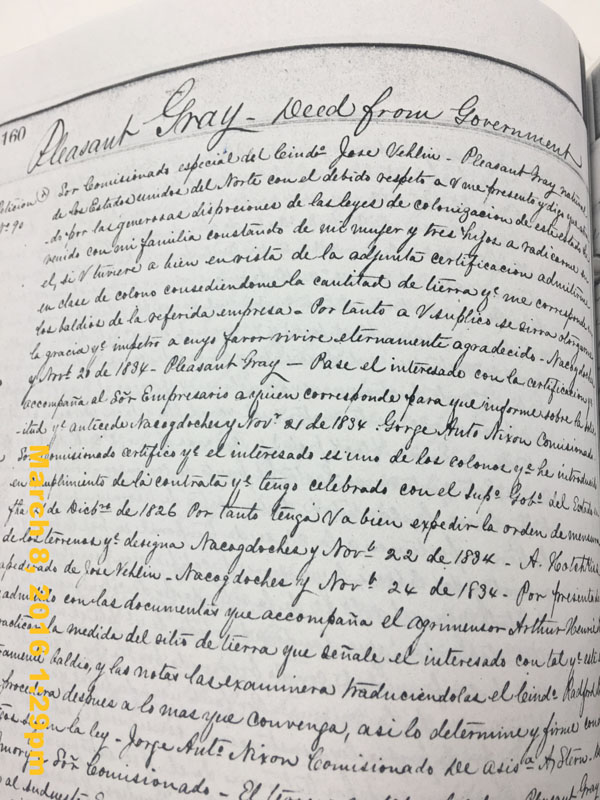 160
Pleasant Gray - Deed from Government
Peticion Sor Comisionado especial del Ciudo Jose Vehlin - Pleasant Gray natural
No 90 de los Estados unidos del Norte con el debido respeto a V me presento y digo que
do por las generosas dispociones de las leyes de colonizacion de este estado he
venido con mi familia constando de mi mujer y tres hijos a radicarme en
el, si V tuviere a bien en vista de la adjunta certificacion admitirme
en clase de colono consediendome la cantidad de tierra qe me corresponde en
los baldios de la referida empresa - Por tanto a V suplico se sirva otorgarme
la gracia qe impetro a cuyo favor vivire eternamente agradecido - Nacogdoches
y Nove 20 de 1834 - Pleasant Gray - Pase el interesado con la certificacion qe
accompaña al Sor Empresario a quien corresponde para que informe sobre la solic
itud qe antecede Nacogdoches y Novr 21 de 1834. Gorge Anto Nixon Comisionado
Sor Comisionado certifico qe el interesado es uno de los colonos qe he introducido
en cumplimento de la contrata qe tengo celebrado con el supo Gobo del Estado en
fha de Dicbre de 1826 Por tanto tenga V a bien expedir la orden de mensura
de los terrenos qe designa Nacogdoches y Nove 22 de 1834 - A. Hotchkiss
apoderado de Jose Vehlin - Nacogdoches y Nove 24 de 1834 - Por presentado
admitido con los documentos que accompaña el agrimensor Arthur Henrie
practicara la medida del sitio de tierra que señale el interesado con tal qe este
baldio, y las notas las examinera traduciendolas el Ciudo Radford
procedera despues a lo mas que convenga, asi lo determine y firme con
segun la ley - Jorge Anto Nixon Comisionado De Asisa A. Stern -
Sor Comisionado - El Pleasant Gray
al sudueste
March 8, 2016 1:29pm